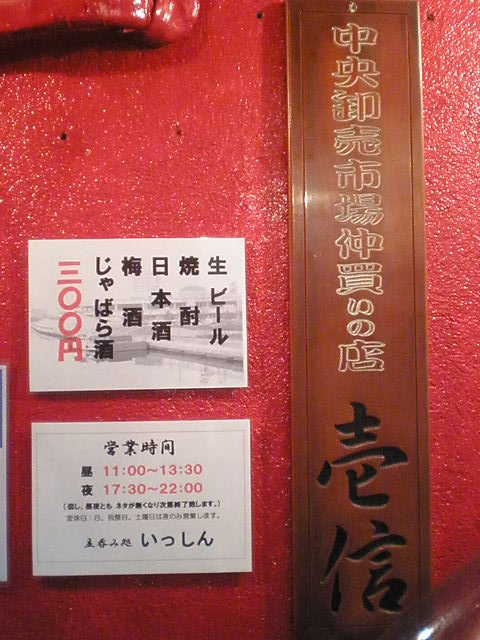 中央卸売市場仲買いの店
壱信
生ビール
焼酎
日本酒
梅酒
じゃばら酒
三〇〇円
営業時間
昼 11:00～13:30
夜 17:30～22:00
(但し、昼夜とも ネタが無くなり次第終了致します。)
定休日：日、祝祭日、土曜日は夜のみ営業します。
立呑み処 いっしん